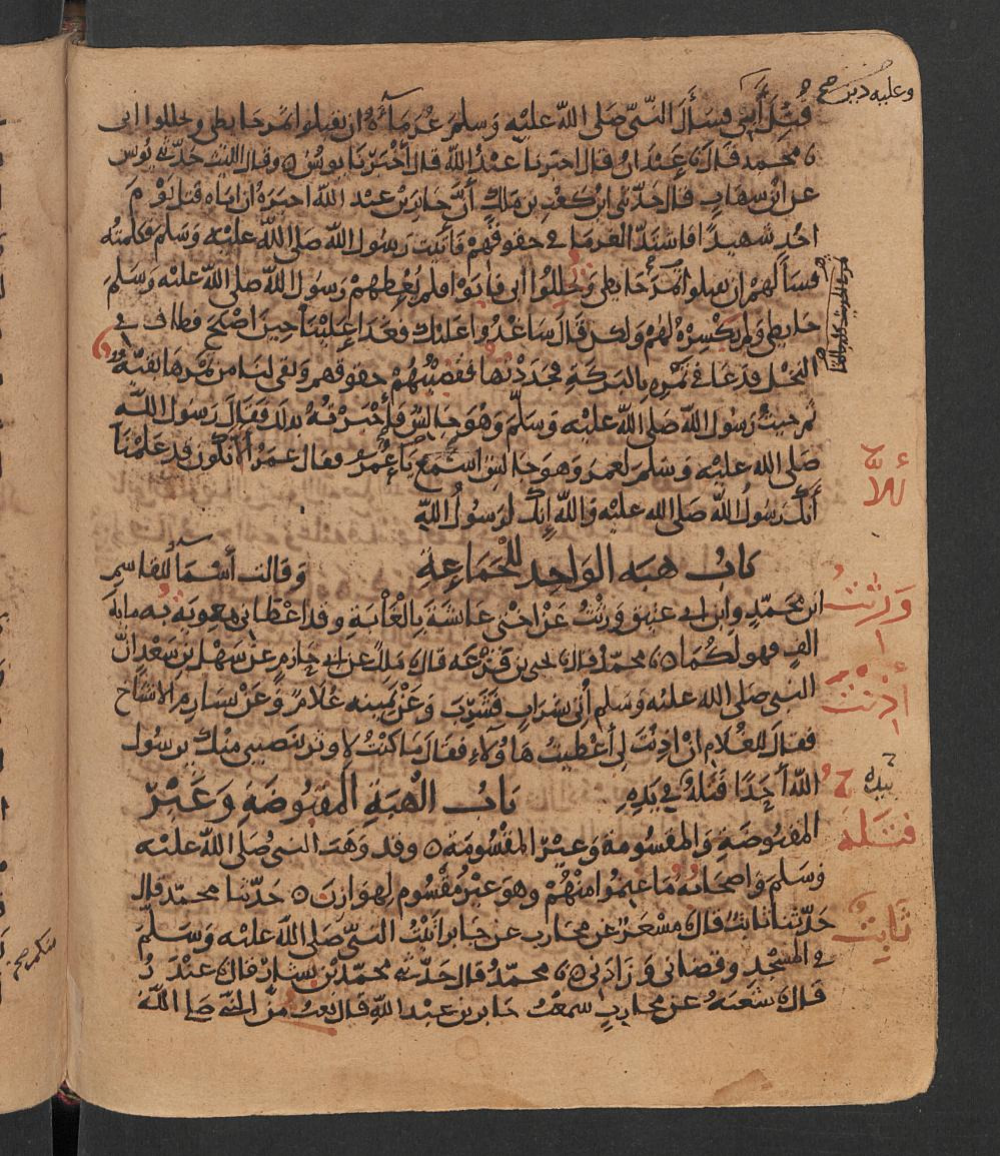 وعليه دين صح
قتل أبي فسأل النبي صلى الله عليه وسلم غرماءه أن يقبلوا ثمر حايطي ويحللوا أبي
محمد قال عبدان قال اخبرنا عبد الله قال أخبرنا يونس وقال الليث حدثني يونس
عن ابن شهاب قال حدثني ابن كعب بن ملك أن جابر بن عبد الله اخبره ان اباه قتل يوم
احد شهيدا فاشتد الغرما في حقوقهم فأتيت رسول الله صلى الله عليه وسلم فكلمته
فسألهم ان يقبلوا ثمر حايطي ويحللوا ابي فأبوا فلم يعطهم رسول الله صلى الله عليه وسلم
حايطي ولم يكسره لهم ولكن قال ساغدوا عليك فغدا علينا حين اصبح فطاف في
النخل فدعا في ثمره بالبركة فجددتها فقضيتهم حقوقهم وبقي لنا من ثمرها بقية
ثم جيت رسول الله صلى الله عليه وسلم وهو جالس فأخبرته بذلك فقال رسول الله
صلى الله عليه وسلم لعمر وهو جالس اسمع يا عمر فقال عمر ألا نكون قد علمنا
أنك رسول الله صلى الله عليه والله إنك لرسول الله
باب هبه الواحد للجماعة وقالت أسما للقاسم
ابن محمد وابن ابي عتيق ورثت عن اختي عائشة بالغابة وقد اعطاني معوية به ماية
الف فهو لكما محمد قال يحيى بن قزعه قال ملك عن ابي حازم عن سهل بن سعد ان
النبي صلى الله عليه وسلم أتي بشراب فشرب وعن يمينه غلام وعن يساره الاشياخ
فقال للغلام ان اذنت لي أعطيت هاؤلاء فقال ما كنت لاوثر بنصيبي منك يرسول
الله أحدا فتله في يده باب الهبة المقبوضة وغير
المقبوضة والمقسومة وغير المقسومة وقد وهب النبي صلى الله عليه
وسلم واصحابه ما غنموا منهم وهو غير مقسوم لهوازن حدثنا محمد قال
حدثنا ثابت قال مسعر عن محارب عن جابر أتيت النبي صلى الله عليه وسلم
في المسجد وقضاني وزادني محمد قال حدثني محمد بن بشار قال غندر
قال شعبه عن محارب سمعت جابر بن عبد الله قال بعت من النبي صلى الله
ألا
ورثت
أذنت
يده
فتله
ثابت